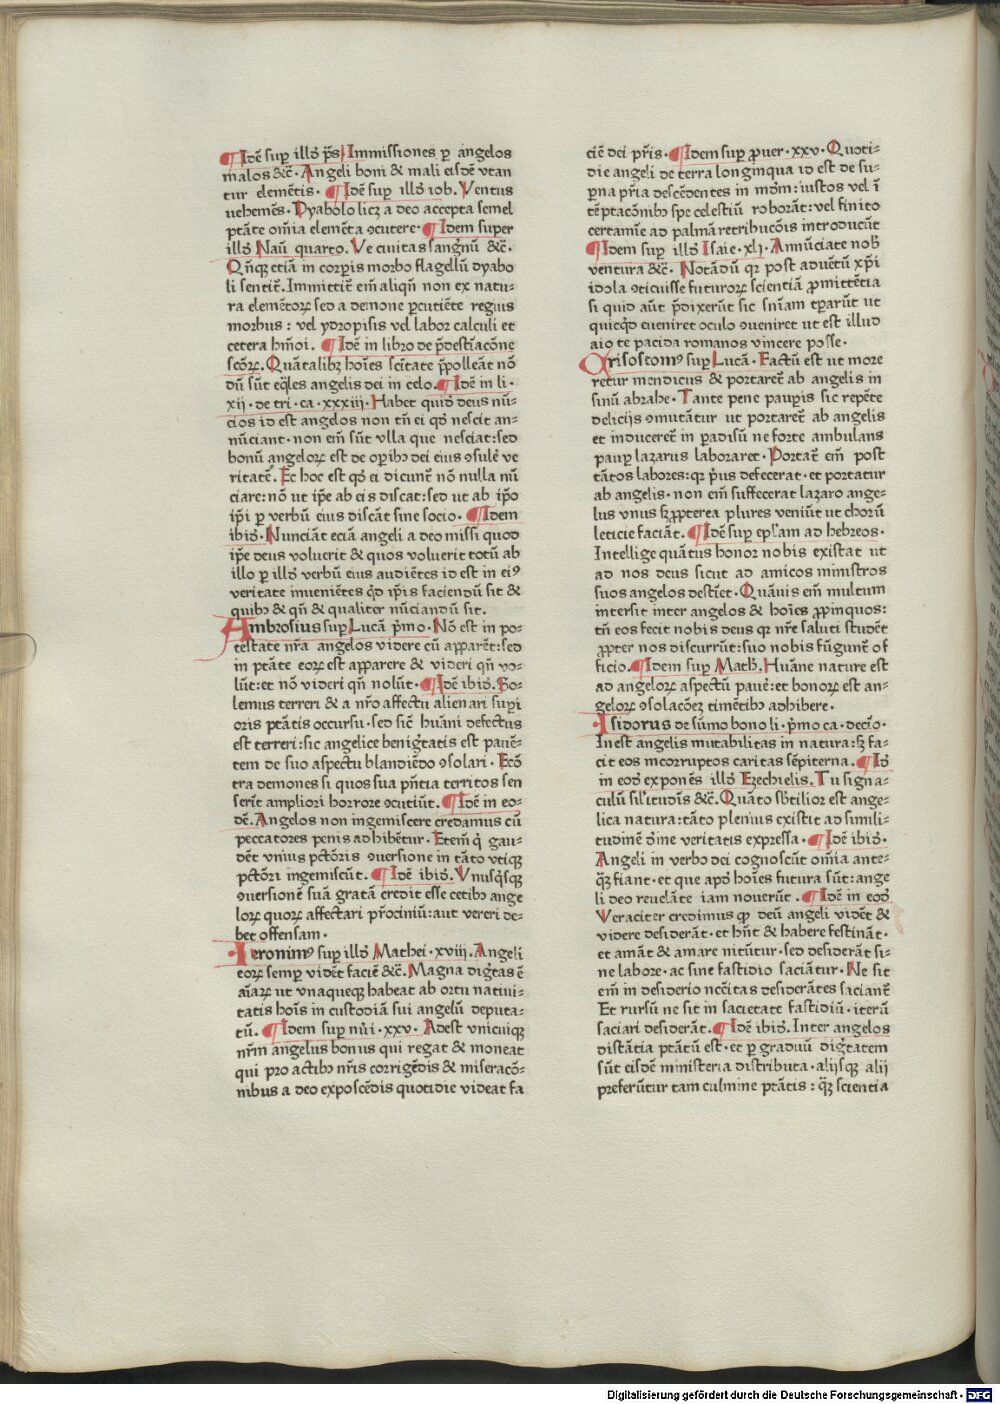 ¶Idē suꝑ illd̕ p̄s Immissiones ꝑ angelos
malos &c̄· Angeli boni & mali eisdē vtan
tur elemētis· ¶Idē suꝑ illd̕ iob. Ventus
uehemēs· Dyabolo licꝫ a deo accepta semel
ptāte om̄ia elemēta ꝯcutere· ¶Idem super
illd̕ Naū quarto. Ve ciuitas sanguinū &c̄·
Qn̄cꝗ etiā in corꝑis morbo flagellū dyabo
li sentit̄. Immittit̄ em̄ aliqn̄ non ex natu⸗
ra elemētoꝝ sed a demone ꝑcutiēte regius
morbus: vel ydropisis vel labor calculi et
cetera hm̄oi. ¶Idē in libro de p̄destiacōne
scōꝝ. Quātalibꝫ hoīes scītate p̄polleāt nō
dū sūt eq̄les angelis dei in celo. ¶Idē in li·
xii· de tri· ca· xxxiii· Habet quid̕ deus nū⸗
cios id est angelos non tn̄ ei qd̕ nescit an⸗
nūciant· non em̄ sūt vlla que nesciat: sed
bonū angeloꝝ est de oꝑibꝰ dei eius ꝯsulē ve
ritatē. Et hoc est qd̕ ei dicunt̄ nō nulla nū
ciare: nō ut ip̄e ab eis discat: sed ut ab ip̄o
ip̄i ꝑ verbū eius discāt sine socio. ¶Idem
ibid̕. Nunciāt eciā angeli a deo missi quod
ip̄e deus voluerit & quos voluerit totū ab
illo ꝑ illd̕ verbū eius audiētes id est in eiꝰ
veritate inueniētes qd̕ ip̄is faciendū sit &
quibꝰ & qn̄ & qualiter nūciandū sit.
Ambrosius suꝑ Lucā p̄mo· Nō est in po⸗
testate nr̄a angelos videre cū apparēt: sed
in ptāte eoꝝ est apparere & videri qn̄ vo⸗
lūt: et nō videri qn̄ nolūt· ¶Idē ibid̕. So⸗
lemus terreri & a nr̄o affectu alienari suꝑi
oris ptātis occursu· sed sic̄ huāni defectus
est terreri: sic angelice benigtatis est pauē⸗
tem de suo aspectu blandiēdo ꝯsolari· Ecō
tra demones si quos sua pn̄tia territos sen
serīt ampliori horrore ꝯcutiūt. ¶Idē in eo⸗
dē. Angelos non ingemiscere credamus cū
peccatores penis adhibētur· Etem̄ q̄ gau⸗
dēt vnius pctōris ꝯuersione in tāto vtiꝗ
pctōri ingemiscūt. ¶Idē ibid̕. Vnusqsꝗ
ꝯuersionē suā gratā credit esse cetibꝰ ange
loꝝ quoꝝ affectari p̄ociniū: aut vereri de⸗
bet offensam·
Ieronimꝰ suꝑ illd̕ Mathei· xviii. Angeli
eoꝝ semꝑ vidēt faciē &c̄. Magna digtas ē
aīaꝝ ut vnaqueꝗ habeat ab ortu natiui⸗
tatis hoīs in custodiā sui angelū deputa⸗
tū. ¶Idem suꝑ nūi· xxv· Adest vnicuiꝗ
nr̄m angelus bonus qui regat & moneat
qui pro actibꝰ nr̄is corrigēdis & miseracō⸗
nibus a deo exposcēdis quotidie videat fa
ciē dei pr̄is. ¶Idem suꝑ ꝓuer· xxv· Quoti⸗
die angeli de terra longinqua id est de su⸗
ꝑna pr̄ia descēdentes in mdm̄: iustos vel ī
tēptacōnibꝰ spe celestiū roborāt: vel finito
certamīe ad palmā retribucōis introducūt
¶Idem suꝑ illd̕ Isaie· xlj· Annūciate nob̕
ventura &c̄· Notādū qꝛ post aduētū xp̄i
idola ꝯticuisse futuroꝝ scientiā ꝓmittētia
si quid aūt p̄dixerūt sic sn̄iam tꝑarūt ut
quicqd̕ eueniret oculo ꝯueniret ut est illud
aio te pacida romanos vincere posse·
Crisostomꝰ suꝑ Lucā· Factū est ut more
retur mendicus & portaret̄ ab angelis in
sinū abrahe· Tante pene pauꝑis sic repēte
delicijs ꝯmutātur ut portaret̄ ab angelis
et induceret̄ in ꝑadisū ne forte ambulans
pauꝑ lazarus laboraret· Portat̄ em̄ post
tātos labores: qꝛ p̄us defecerat· et portatur
ab angelis· non em̄ suffecerat lazaro ange⸗
lus vnus sꝫ ꝓpterea plures veniūt ut chorū
leticie faciāt. ¶Idē suꝑ epl̄am ad hebreos·
Intellige quātus honor nobis existat ut
ad nos deus sicut ad amicos ministros
suos angelos destīet· Quāuis em̄ multum
intersit inter angelos & hoīes ꝓpinquos:
tn̄ eos fecit nobis deus qꝛ nr̄e saluti studēt
ꝓpter nos discurrūt: suo nobis fūgunt̄ of
ficio. ¶Idem suꝑ Math̕. Huāne nature est
ad angeloꝝ aspectū pauē: et bonoꝝ est an⸗
geloꝝ ꝯsolacōeꝫ timētibꝰ adhibere·
Isidorus de sūmo bono li· p̄mo ca· decīo·
Inest angelis mutabilitas in natura: sꝫ fa⸗
cit eos incorruptos caritas sēpiterna. ¶Id̕
in eod̕ exponēs illd̕ Ezechielis. Tu signa⸗
culū sil̕itudīs &c̄. Quāto sb̕tilior est ange⸗
lica natura: tāto plenius existit ad simili⸗
tudinē dīne veritatis expressa· ¶Idē ibid̕.
Angeli in verbo dei cognoscūt om̄ia ante⸗
q̄ꝫ fiant· et que apd̕ hoīes futura sūt: ange
li deo reuelāte iam nouerūt. ¶Idē in eod̕
Veraciter credimus ꝙ deū angeli vidēt &
videre desiderāt· et hn̄t & habere festināt·
et amāt & amare nitūtur· sed desiderāt si⸗
ne labore· ac sine fastidio saciātur· Ne sit
em̄ in desiderio nccītas desiderātes saciant̄
Et rursū ne sit in sacietate fastidiū· iterū
saciari desiderāt. ¶Idē ibid̕. Inter angelos
distātia ptātū est· et ꝑ graduū digtatem
sūt eisdē ministeria distributa· alijsꝗ alij
preferūtur tam culmine ptātis: q̄ꝫ scientia
Digitalisierung gefördert durch die Deutsche Forschungsgemeinschaft - DFG